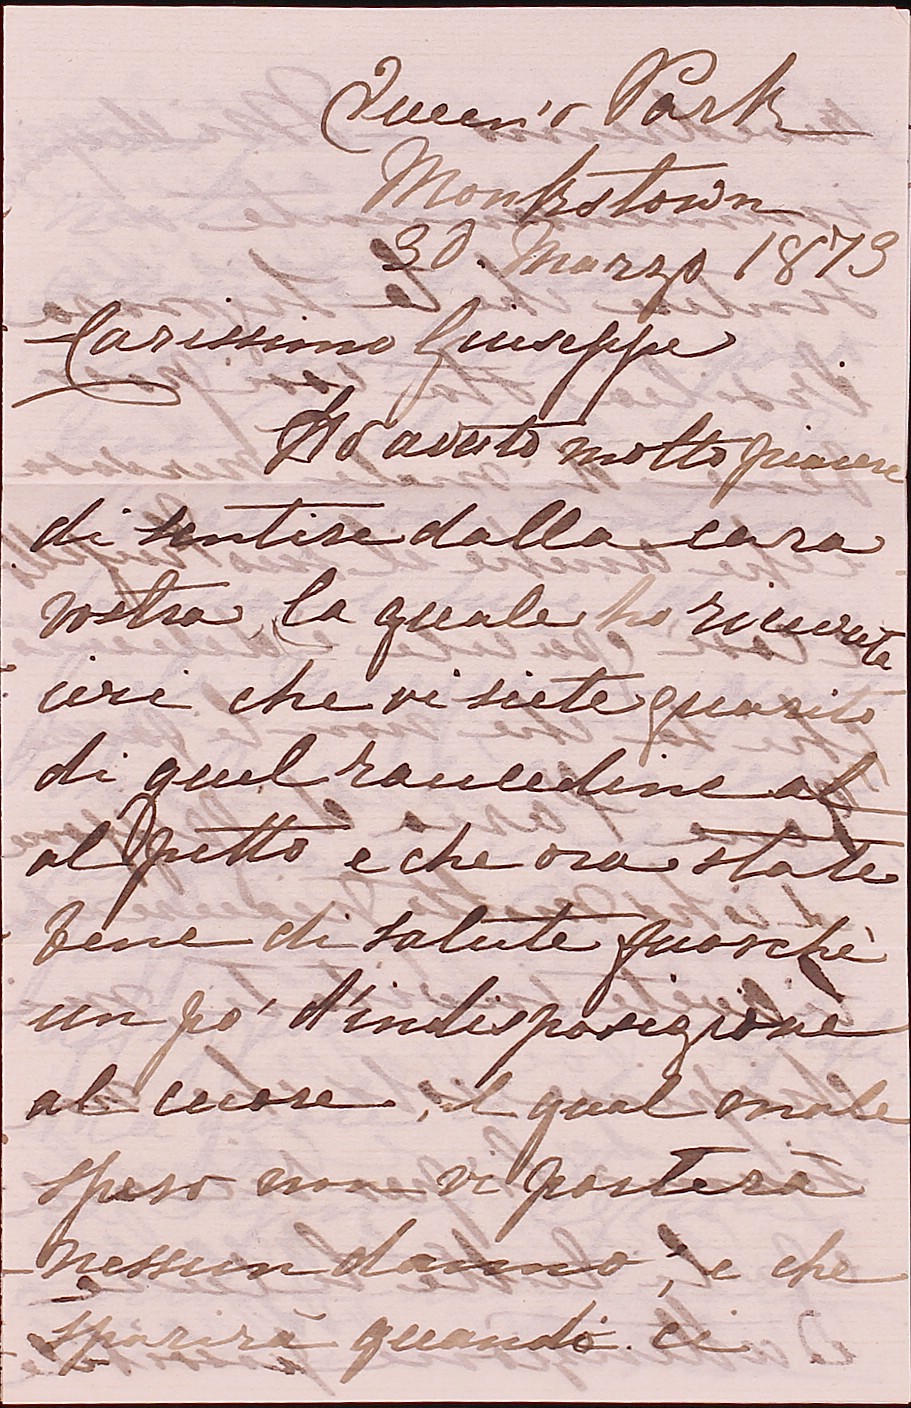 Queen's Park
Monkstown
30 Marzo 1873
Carissimo Giuseppe
Ho avuto molto piacere
di sentire dalla cara
vostra, la quale ho ricevuta
ieri che vi siete guarito
di quel raucedine al
al petto e che ora state
bene di salute fuorchè
un po' d'indisposizione
al cuore, il qual male
spero non vi porterà
nessun danno, e che
sparirà quando ci